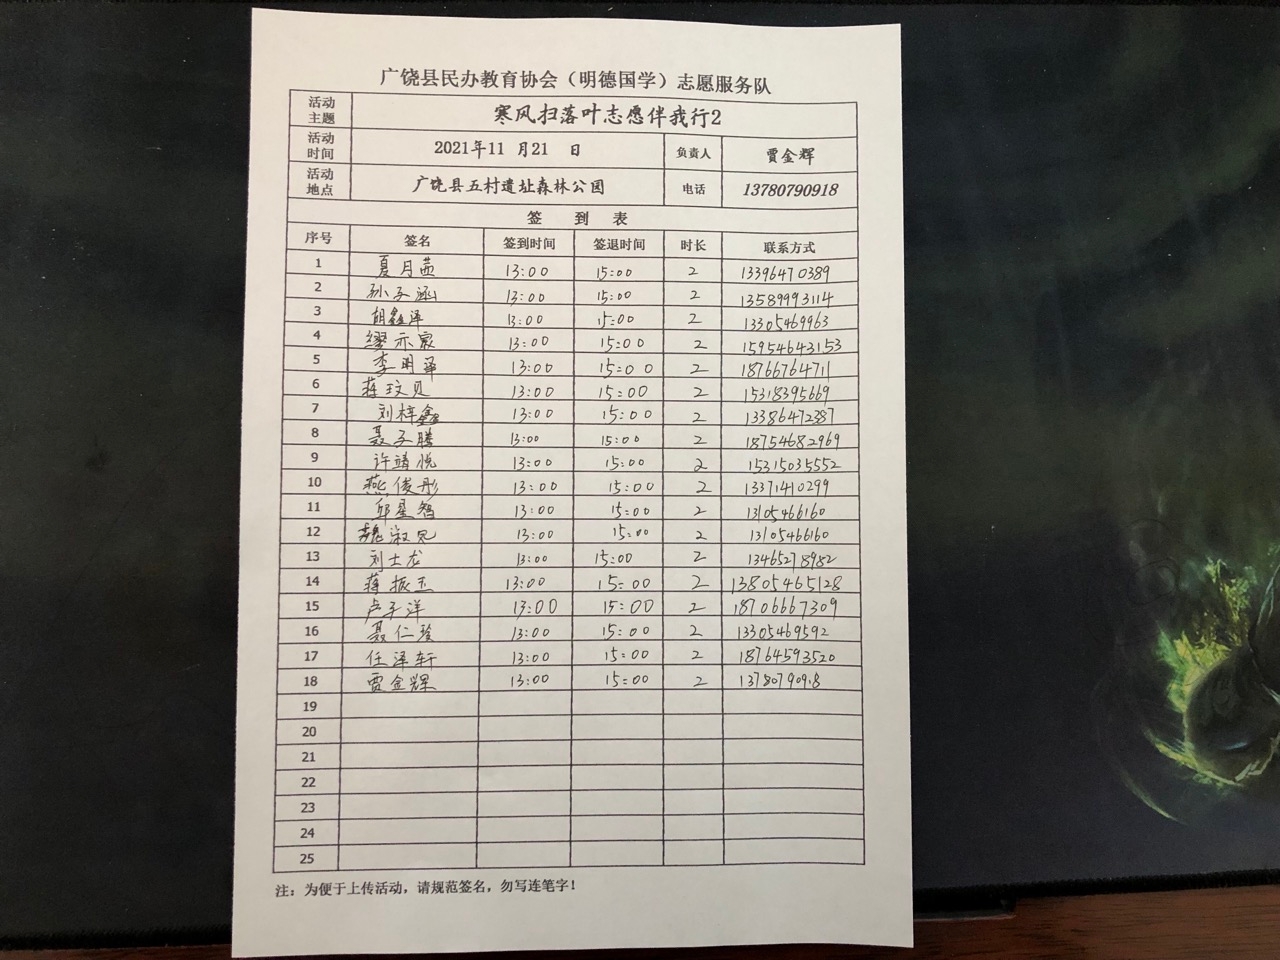 广饶县民办教育协会（明德国学）志愿服务队
活动主题 寒风扫落叶志愿伴我行2
活动时间 2021年11 月21 日 负责人 贾金辉
活动地点 广饶县五村遗址森林公园 电话 13780790918
签 到 表
序号 签名 签到时间 签退时间 时长 联系方式
1 夏月茜 13:00 15:00 2 13396470389
2 孙子涵 13:00 15:00 2 13589993114
3 胡鑫泽 13:00 15:00 2 13305469963
4 缪亦宸 13:00 15:00 2 15954643153
5 李明泽 13:00 15:00 2 18766764711
6 蒋玟贝 13:00 15:00 2 15318395669
7 刘梓鑫 13:00 15:00 2 13386472387
8 聂子腾 13:00 15:00 2 18754682969
9 许靖悦 13:00 15:00 2 15315035552
10 燕俊彤 13:00 15:00 2 13371410299
11 邱星智 13:00 15:00 2 13105466160
12 魏淑兄 13:00 15:00 2 13105466160
13 刘士龙 13:00 15:00 2 13465278982
14 蒋振玉 13:00 15:00 2 13805465128
15 卢子洋 13:00 15:00 2 18706667309
16 聂仁 13:00 15:00 2 13305469592
17 任泽轩 13:00 15:00 2 18764593520
18 贾金辉 13:00 15:00 2
19
20
21
22
23
24
25
注：为便于上传活动，请规范签名，勿写连笔字！